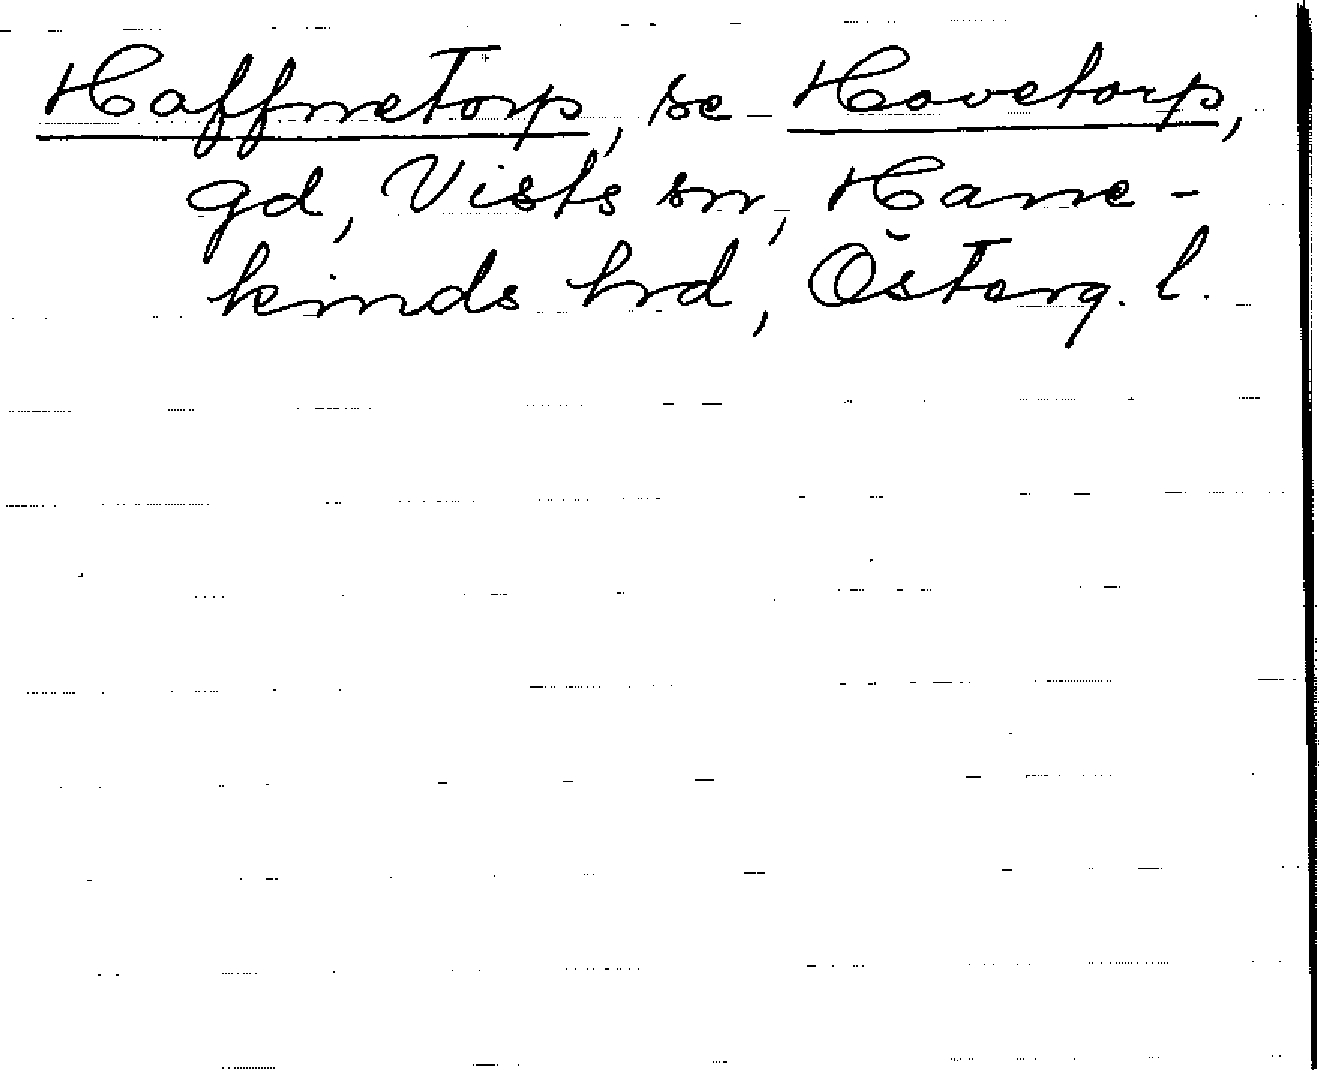 Haffnetorp, se Hovetorp,
gd, Vists sn, Hane-
kinds hrd, Österg. l.